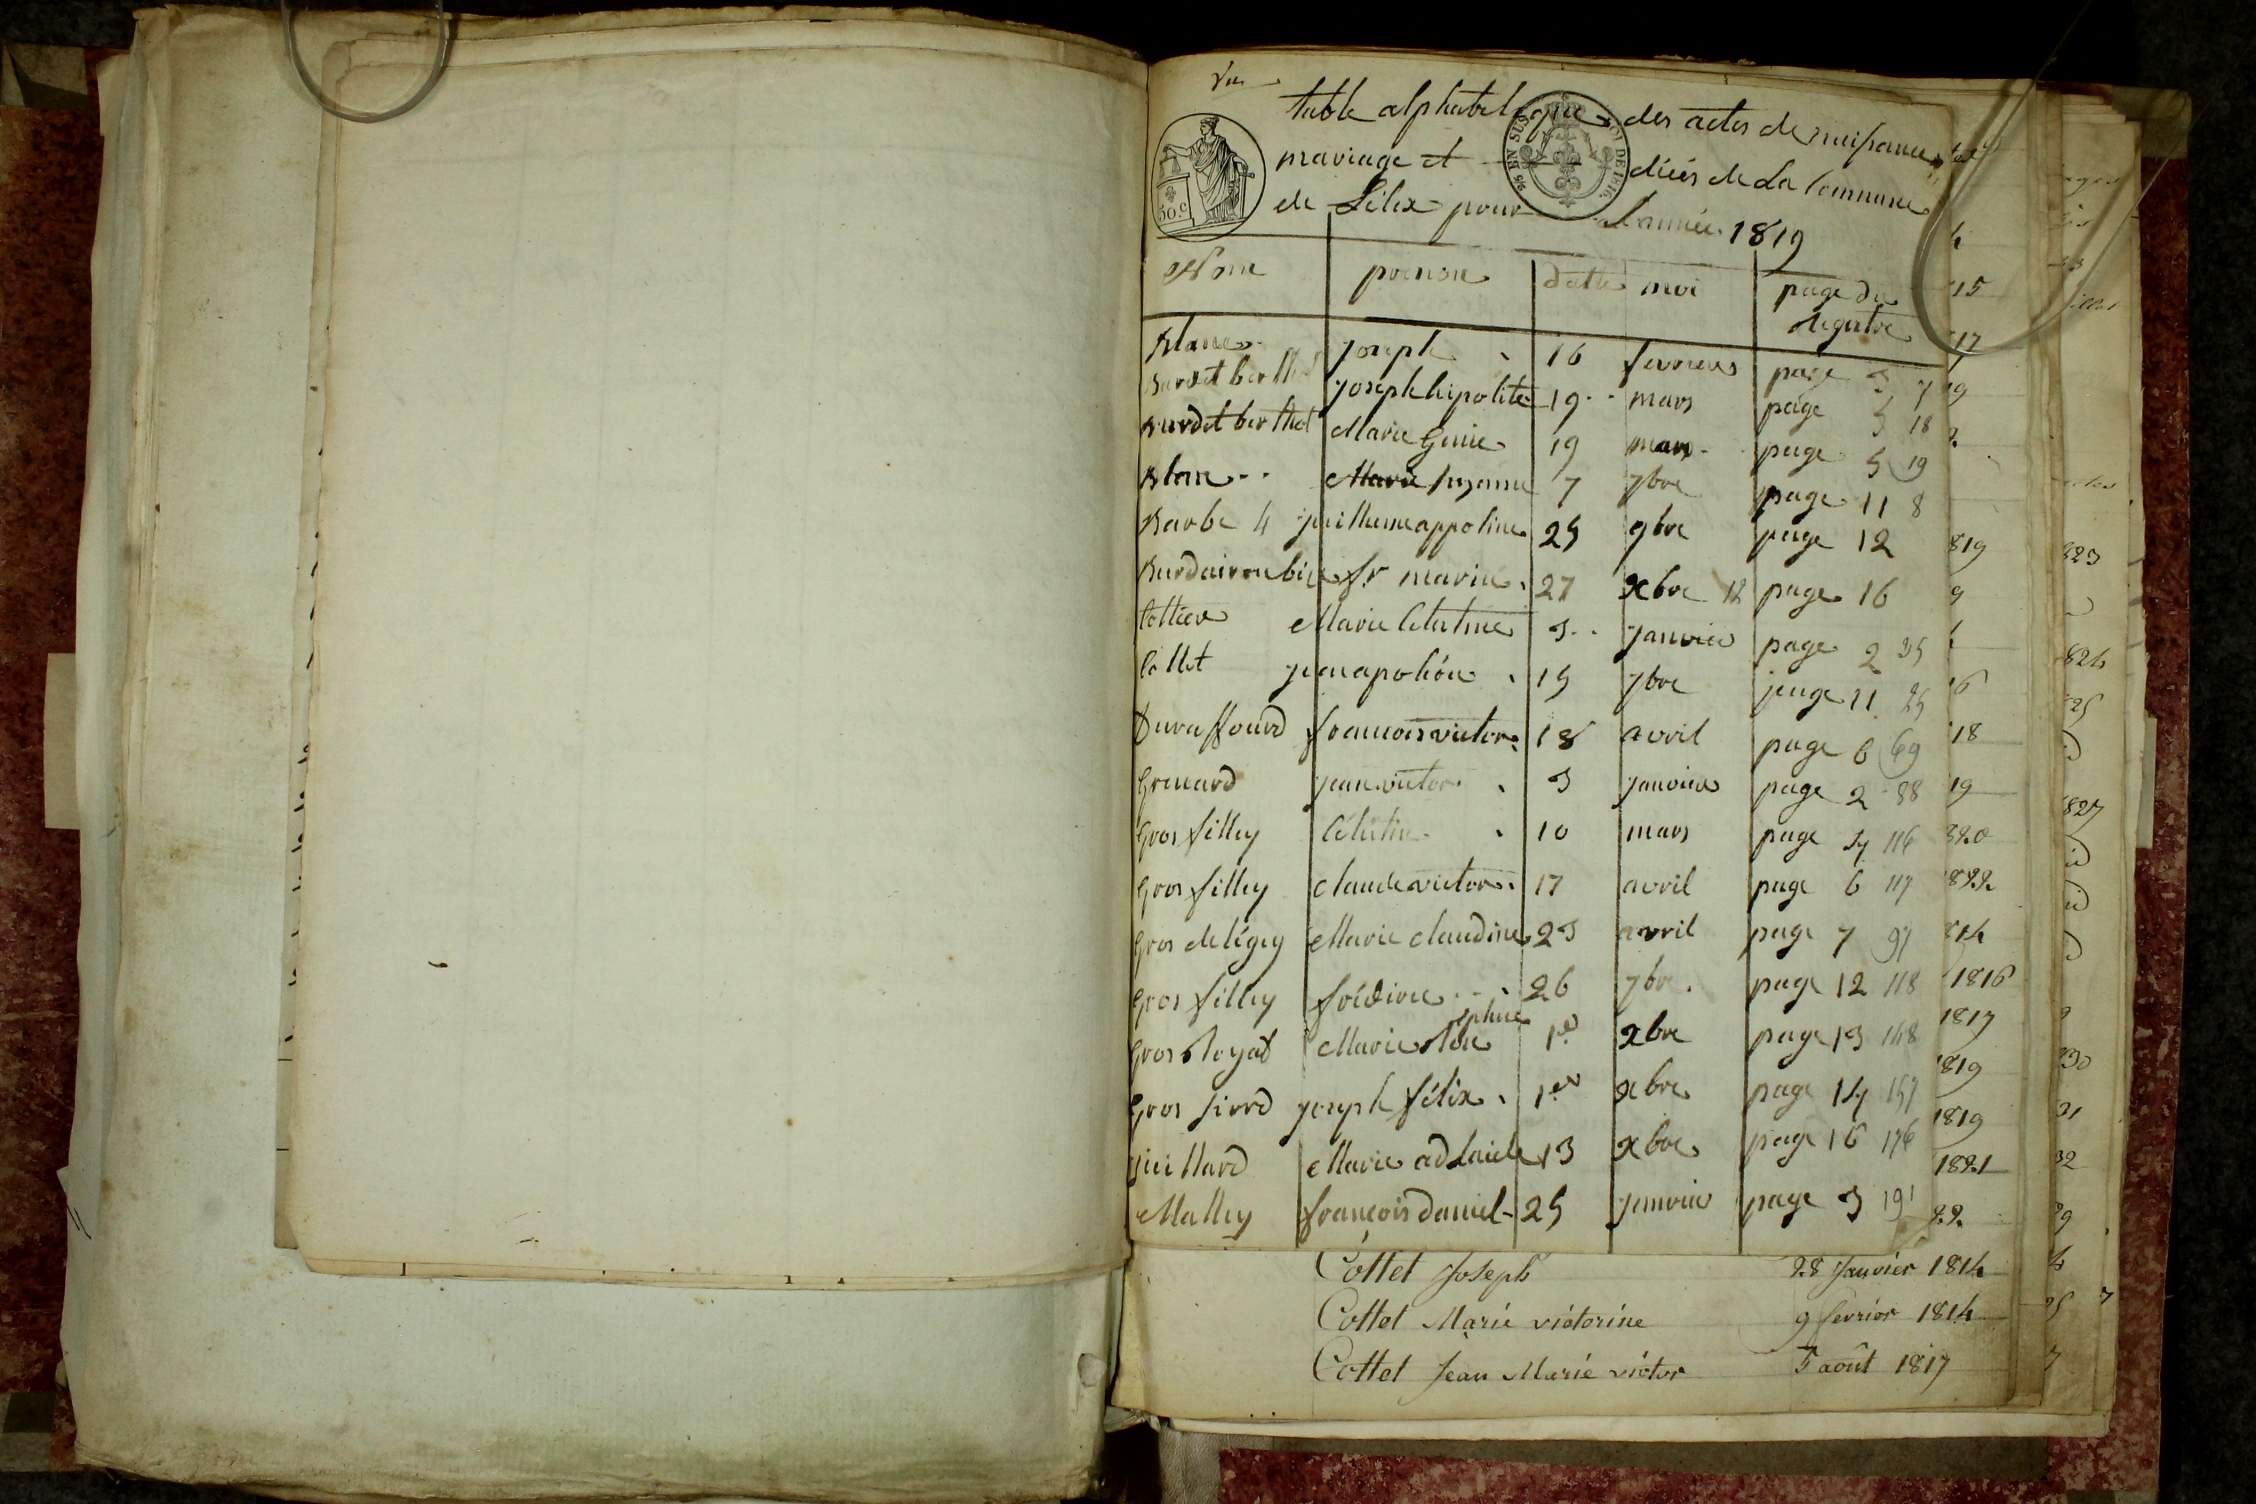 Vu
table alphabetique des actes de naissance
mariage et décés de La Commune
de Lélex pour L'année 1819
50.c
EN SUS
LOI DE 1816
Nom prenom datte moi page du
Registre
Blanc joseph 16 fevrier page 3 7
Burdet berthet joseph hipolite 19 mars page 5 18
Burdet berthet Marie Genie 19 mars page 5 19
Blanc Marie Suzanne 7 7bre page 11 8
Barbe 4 guilleme appoline 25 9bre page 12
fs marie 27 xbre 12 page 16
Cottier Marie Celestine 3 janvier page 2 25
Cottet napoléon 15 7bre page 11 25
Duraffourd francois victor 18 avril page 6 69
Grenard jean victor 3 janvier page 2 88
Gros filley Célestin 10 mars page 4 116
Gros filley claude victor 17 avril page 6 117
Gros deléguy Marie claudine 23 avril page 7 97
Gros filley 26 7bre page 12 118
Gros Royat Marie 1er xbre page 13 148
Gros joseph félix 1er xbre page 14 157
Guillard Marie adlaide 13 xbre page 16 176
Malley françois daniel 25 janvier page 3 191
Cottet Joseph 28 Janvier 1814
Cottet Marie victorine 9 fevrier 1814
Cottet Jean Marie victor 5 août 1817
15
17
19
819
9
16
18
19
820
1822
814
1816
1817
1819
1819
1821
22
823
824
25
827
830
31
32